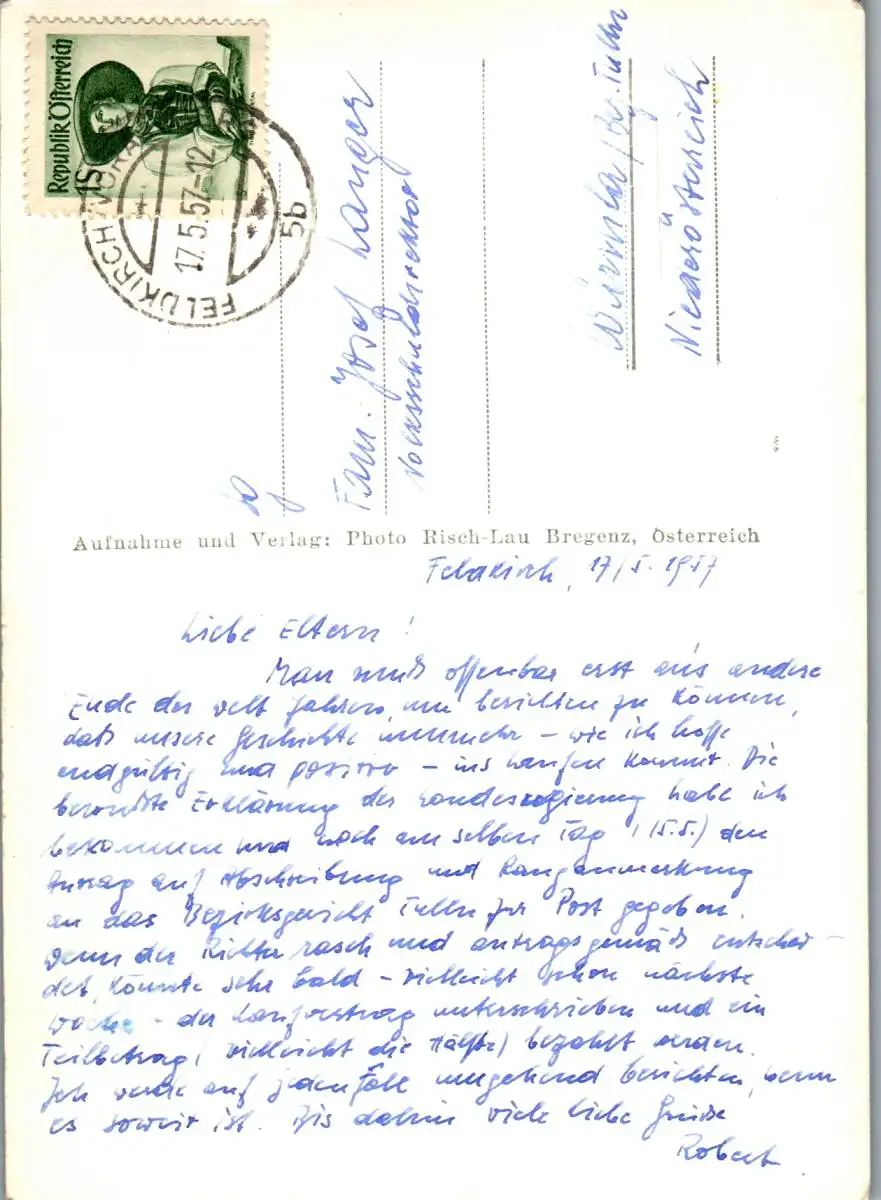 Republik Österreich
1S
FELDKIRCH
17.5.57-12
5b
Fam. Josef Langer
Volksschuldirektor
Würmla, Bez. Tulln
Niederösterreich
Aufnahme und Verlag: Photo Risch-Lau Bregenz, Österreich
Feldkirch, 17/5. 1957
Liebe Eltern!
Man muß offenbar erst ans andere
Ende der Welt fahren, um berichten zu können,
daß unsere Geschichte nunmehr – wie ich hoffe
endgültig und positiv – ins Laufen kommt. Die
bewußte Erklärung der Landesregierung habe ich
bekommen und noch am selben Tag (15.5.) den
Antrag auf Abschreibung und Ranganmerkung
an das Bezirksgericht Tulln zur Post gegeben.
Wenn der Richter rasch und antragsgemäß entschei-
det, könnte sehr bald – vielleicht schon nächste
Woche – der Kaufvertrag unterschrieben und ein
Teilbetrag (vielleicht die Hälfte) bezahlt werden.
Ich werde auf jeden Fall umgehend berichten, wenn
es soweit ist. Bis dahin viele liebe Grüße
Robert